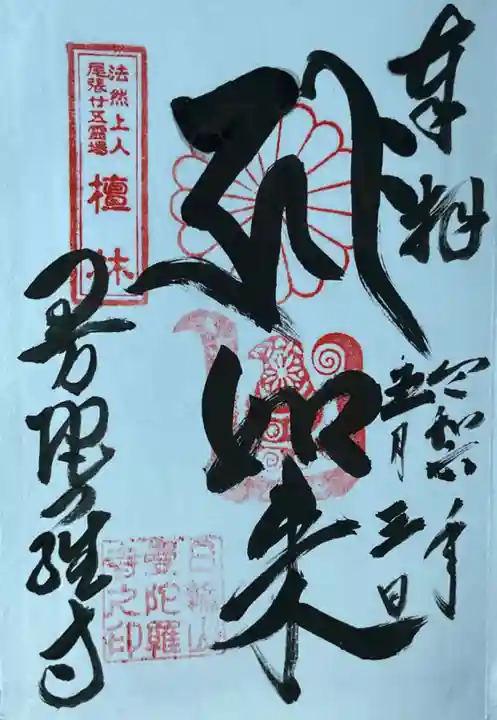 奉拝
令和六年
五月三日
如来
法然上人
尾張廿五霊場
檀林
曼陀羅寺
日輪山
曼陀羅
寺之印